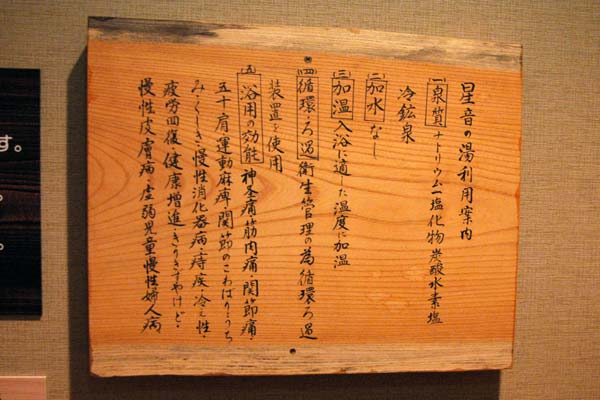 星音の湯利用案内
(一)泉質 ナトリウム一塩化物炭酸水素塩
冷鉱泉
(二)加水 なし
(三)加温 入浴に適した温度に加温
(四)循環・ろ過 衛生管理の為循環・ろ過
装置を使用
(五)浴用の効能 神圣痛・筋肉痛・関節痛・
五十肩運動麻痺・関節のこわばり・うち
み・くじき・慢性消化器病・痔疾・冷え性・
疲労回復・健康増進・きりきずやけど・
慢性皮膚病・虚弱児童慢性婦人病
す。
。
。